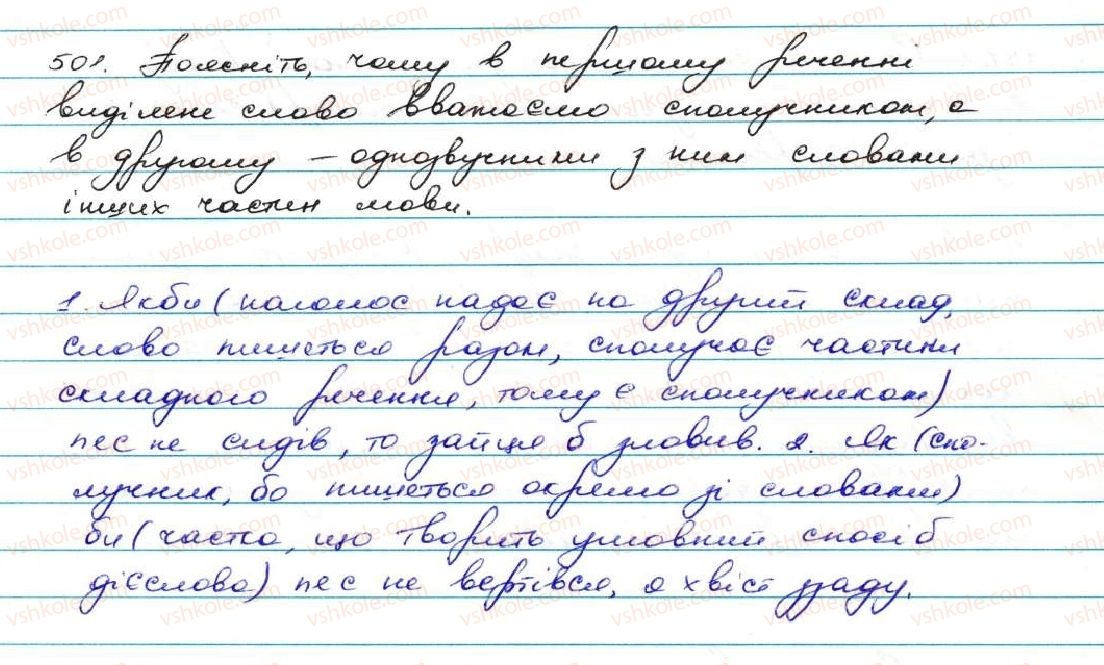 501. Поясніть, чому в першому реченні
виділене слово вважаємо сполучником, а
в другому – однозвучними з ним словами
інших частин мови.
1. Якби (наголос падає на другий склад,
слово пишеться разом, сполучає частини
складного речення, тому є сполучником)
пес не сидів, то зайця б зловив. 2. Як (спо-
лучник, бо пишеться окремо зі словами)
би (частка, що творить умовний спосіб
дієслова) пес не вертівся, а хвіст ззаду.